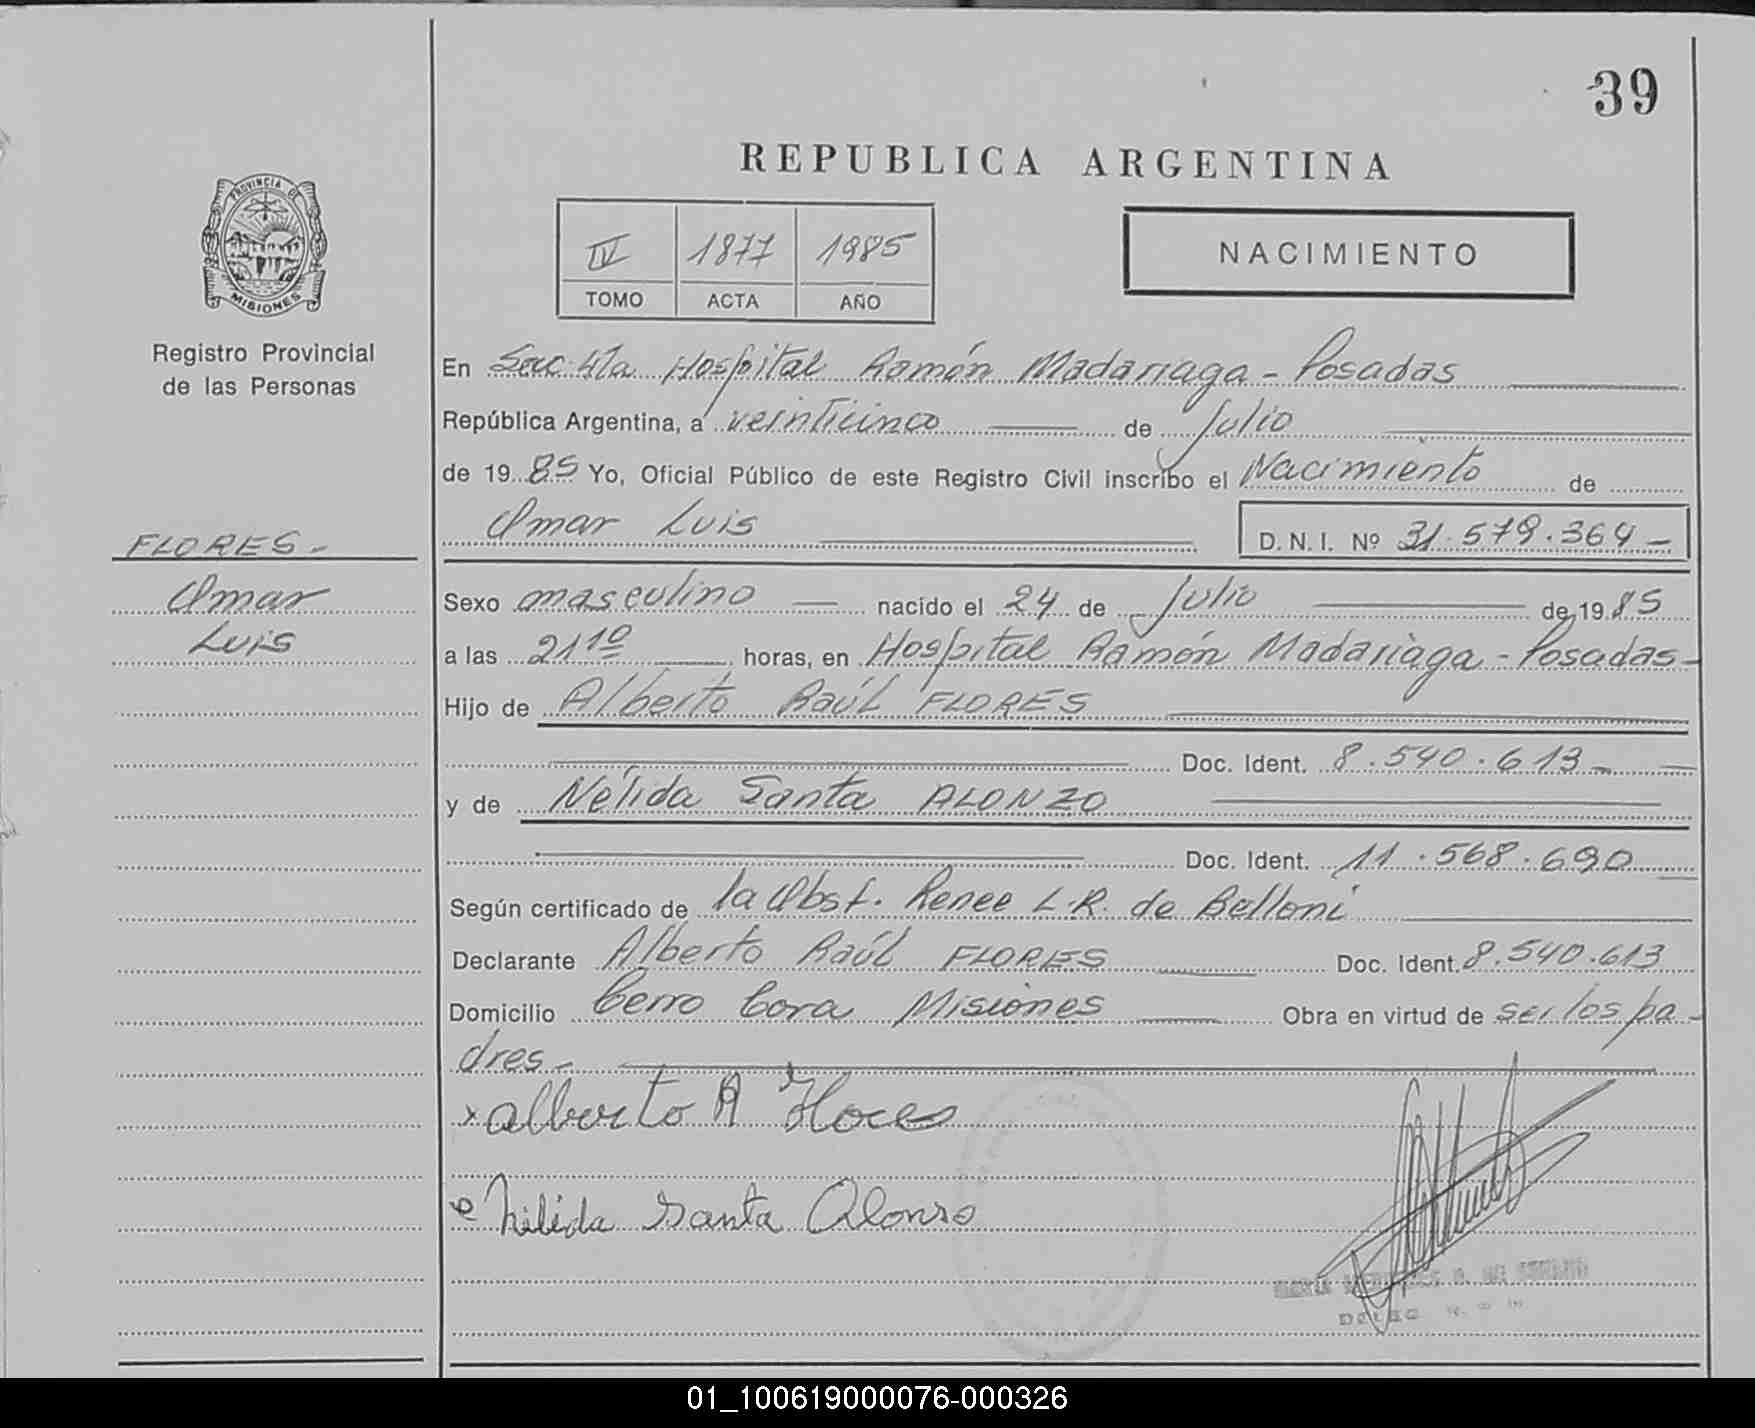 39
REPUBLICA ARGENTINA
PROVINCIA DE
MISIONES
Registro Provincial
de las Personas
IV 1877 1985
TOMO ACTA AÑO
NACIMIENTO
En Secc. 4ta Hospital Ramón Madariaga - Posadas
República Argentina, a veinticinco de Julio
de 1985 Yo, Oficial Público de este Registro Civil inscribo el Nacimiento de
Omar Luis D. N. I. Nº 31.579.364 -
FLORES -
Omar
Luis
Sexo masculino nacido el 24 de Julio de 1985
a las 21 10 horas, en Hospital Ramón Madariaga - Posadas -
Hijo de Alberto Raúl FLORES
Doc. Ident. 8.540.613 -
y de Nélida Santa ALONZO
Doc. Ident. 11.568.690
Según certificado de la Obst. Renee L.R. de Belloni
Declarante Alberto Raúl FLORES Doc. Ident. 8.540.613
Domicilio Cerro Cora Misiones Obra en virtud de ser los pa -
dres -
x alberto R Flores
Nilida Santa Alonso
01_100619000076-000326